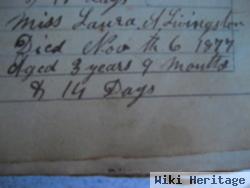 Days
Miss Laura A Livingston
Died Nov th 6 1877
Aged 3 years 9 Months
& 14 Days
Wiki Heritage